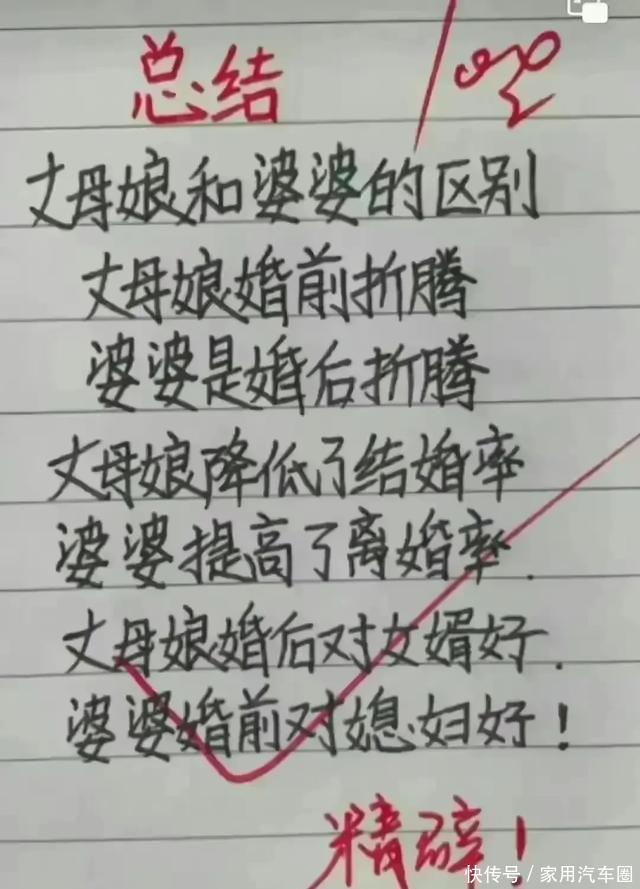 总结
100
丈母娘和婆婆的区别
丈母娘婚前折腾
婆婆是婚后折腾
丈母娘降低了结婚率
婆婆提高了离婚率.
丈母娘婚后对女婿好.
婆婆婚前对媳妇好!
精辟!
快传号/家用汽车圈